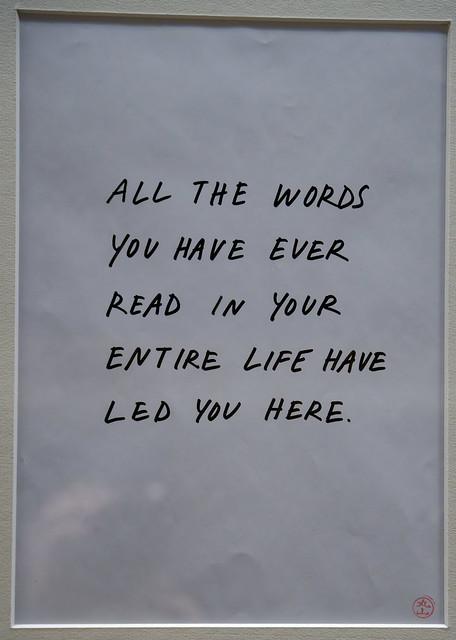 ALL THE WORDS
YOU HAVE EVER
READ IN YOUR
ENTIRE LIFE HAVE
LED YOU HERE.